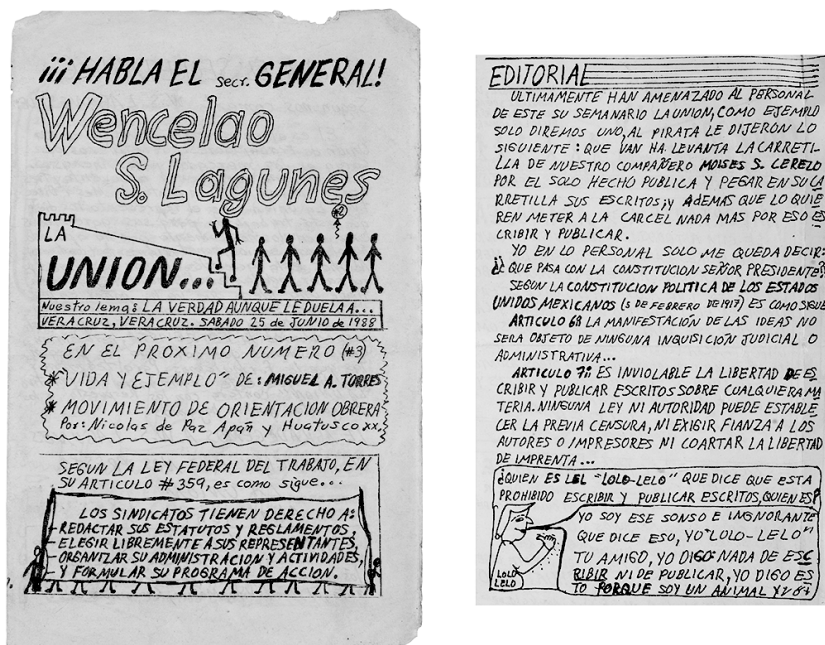 ¡¡¡ HABLA EL Secr. GENERAL!
Wencelao
S. Lagunes
#2
LA
UNION...
Nuestro lema: LA VERDAD AUNQUE LE DUELA A...
VERACRUZ, VERACRUZ. SABADO 25 de JUNIO de 1988
EN EL PROXIMO NUMERO (#3)
* "VIDA Y EJEMPLO" DE: MIGUEL A. TORRES
* MOVIMIENTO DE ORIENTACION OBRERA
Por: Nicolas de Paz Apan y Huatusco xx.
SEGUN LA LEY FEDERAL DEL TRABAJO, EN
SU ARTICULO #359, es como sigue...
LOS SINDICATOS TIENEN DERECHO A:
-REDACTAR SUS ESTATUTOS Y REGLAMENTOS,
-ELEGIR LIBREMENTE A SUS REPRESENTANTES,
-ORGANIZAR SU ADMINISTRACION Y ACTIVIDADES,
-Y FORMULAR SU PROGRAMA DE ACCION.
EDITORIAL
ULTIMAMENTE HAN AMENAZADO AL PERSONAL
DE ESTE SU SEMANARIO LA UNION, COMO EJEMPLO
SOLO DIREMOS UNO, AL PIRATA LE DIJERON LO
SIGUIENTE: QUE VAN HA LEVANTA LA CARRETI-
LLA DE NUESTRO COMPAÑERO MOISES S. CEREZO
POR EL SOLO HECHO PUBLICA Y PEGAR EN SU CA
RRETILLA SUS ESCRITOS; Y ADEMAS QUE LO QUIE
REN METER A LA CARCEL NADA MAS POR ESO ES
CRIBIR Y PUBLICAR.
YO EN LO PERSONAL SOLO ME QUEDA DECIR:
¿¡ QUE PASA CON LA CONSTITUCION SEÑOR PRESIDENTE?!
SEGUN LA CONSTITUCION POLITICA DE LOS ESTADOS
UNIDOS MEXICANOS (5 DE FEBRERO DE 1917) ES COMO SIGUE
ARTICULO 6º LA MANIFESTACIÓN DE LAS IDEAS NO
SERA OBJETO DE NINGUNA INQUISICIÓN JUDICIAL O
ADMINISTRATIVA...
ARTICULO 7º: ES INVIOLABLE LA LIBERTAD DE ES
CRIBIR Y PUBLICAR ESCRITOS SOBRE CUALQUIERA MA
TERIA. NINGUNA LEY NI AUTORIDAD PUEDE ESTABLE
CER LA PREVIA CENSURA, NI EXIGIR FIANZA A LOS
AUTORES O IMPRESORES NI COARTAR LA LIBERTAD
DE IMPRENTA...
¿QUIEN ES LEL "LOLO-LELO" QUE DICE QUE ESTA
PROHIBIDO ESCRIBIR Y PUBLICAR ESCRITOS, QUIEN ES?
YO SOY ESE SONSO E IMGNORANTE
QUE DICE ESO, YO "LOLO-LELO"
TU AMIGO, YO DIGO: NADA DE ESC
RIBIR NI DE PUBLICAR, YO DIGO ES
TO PORQUE SOY UN ANIMAL
LOLO
LELO